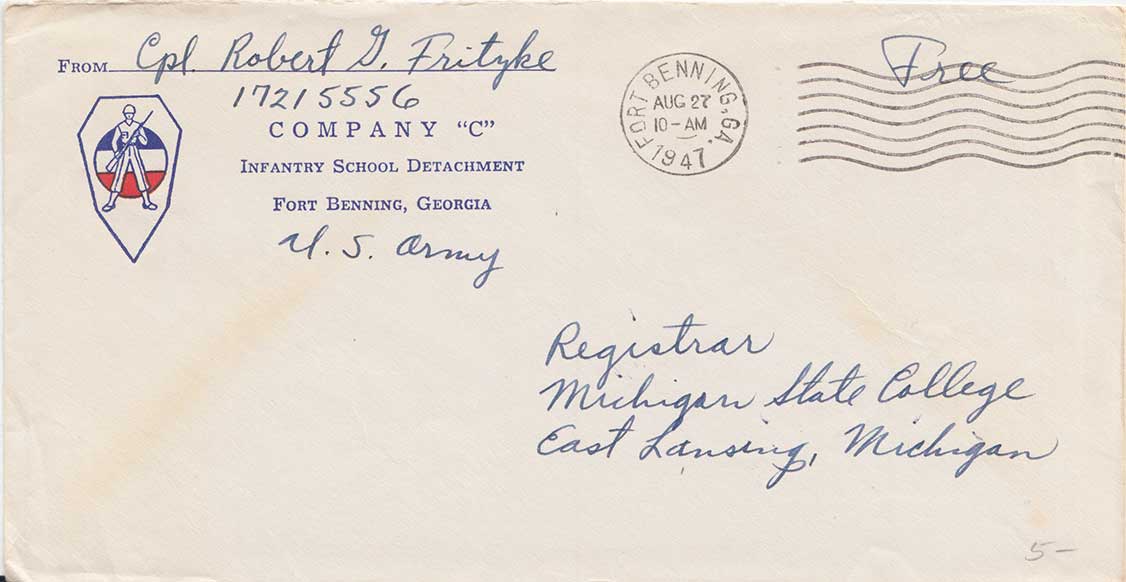 FROM Cpl. Robert G. Fritzke
17215556
COMPANY "C"
INFANTRY SCHOOL DETACHMENT
FORT BENNING, GEORGIA
U. S. Army
FORT BENNING, GA.
AUG 27
10-AM
1947
Free
Registrar
Michigan State College
East Lansing, Michigan
5-